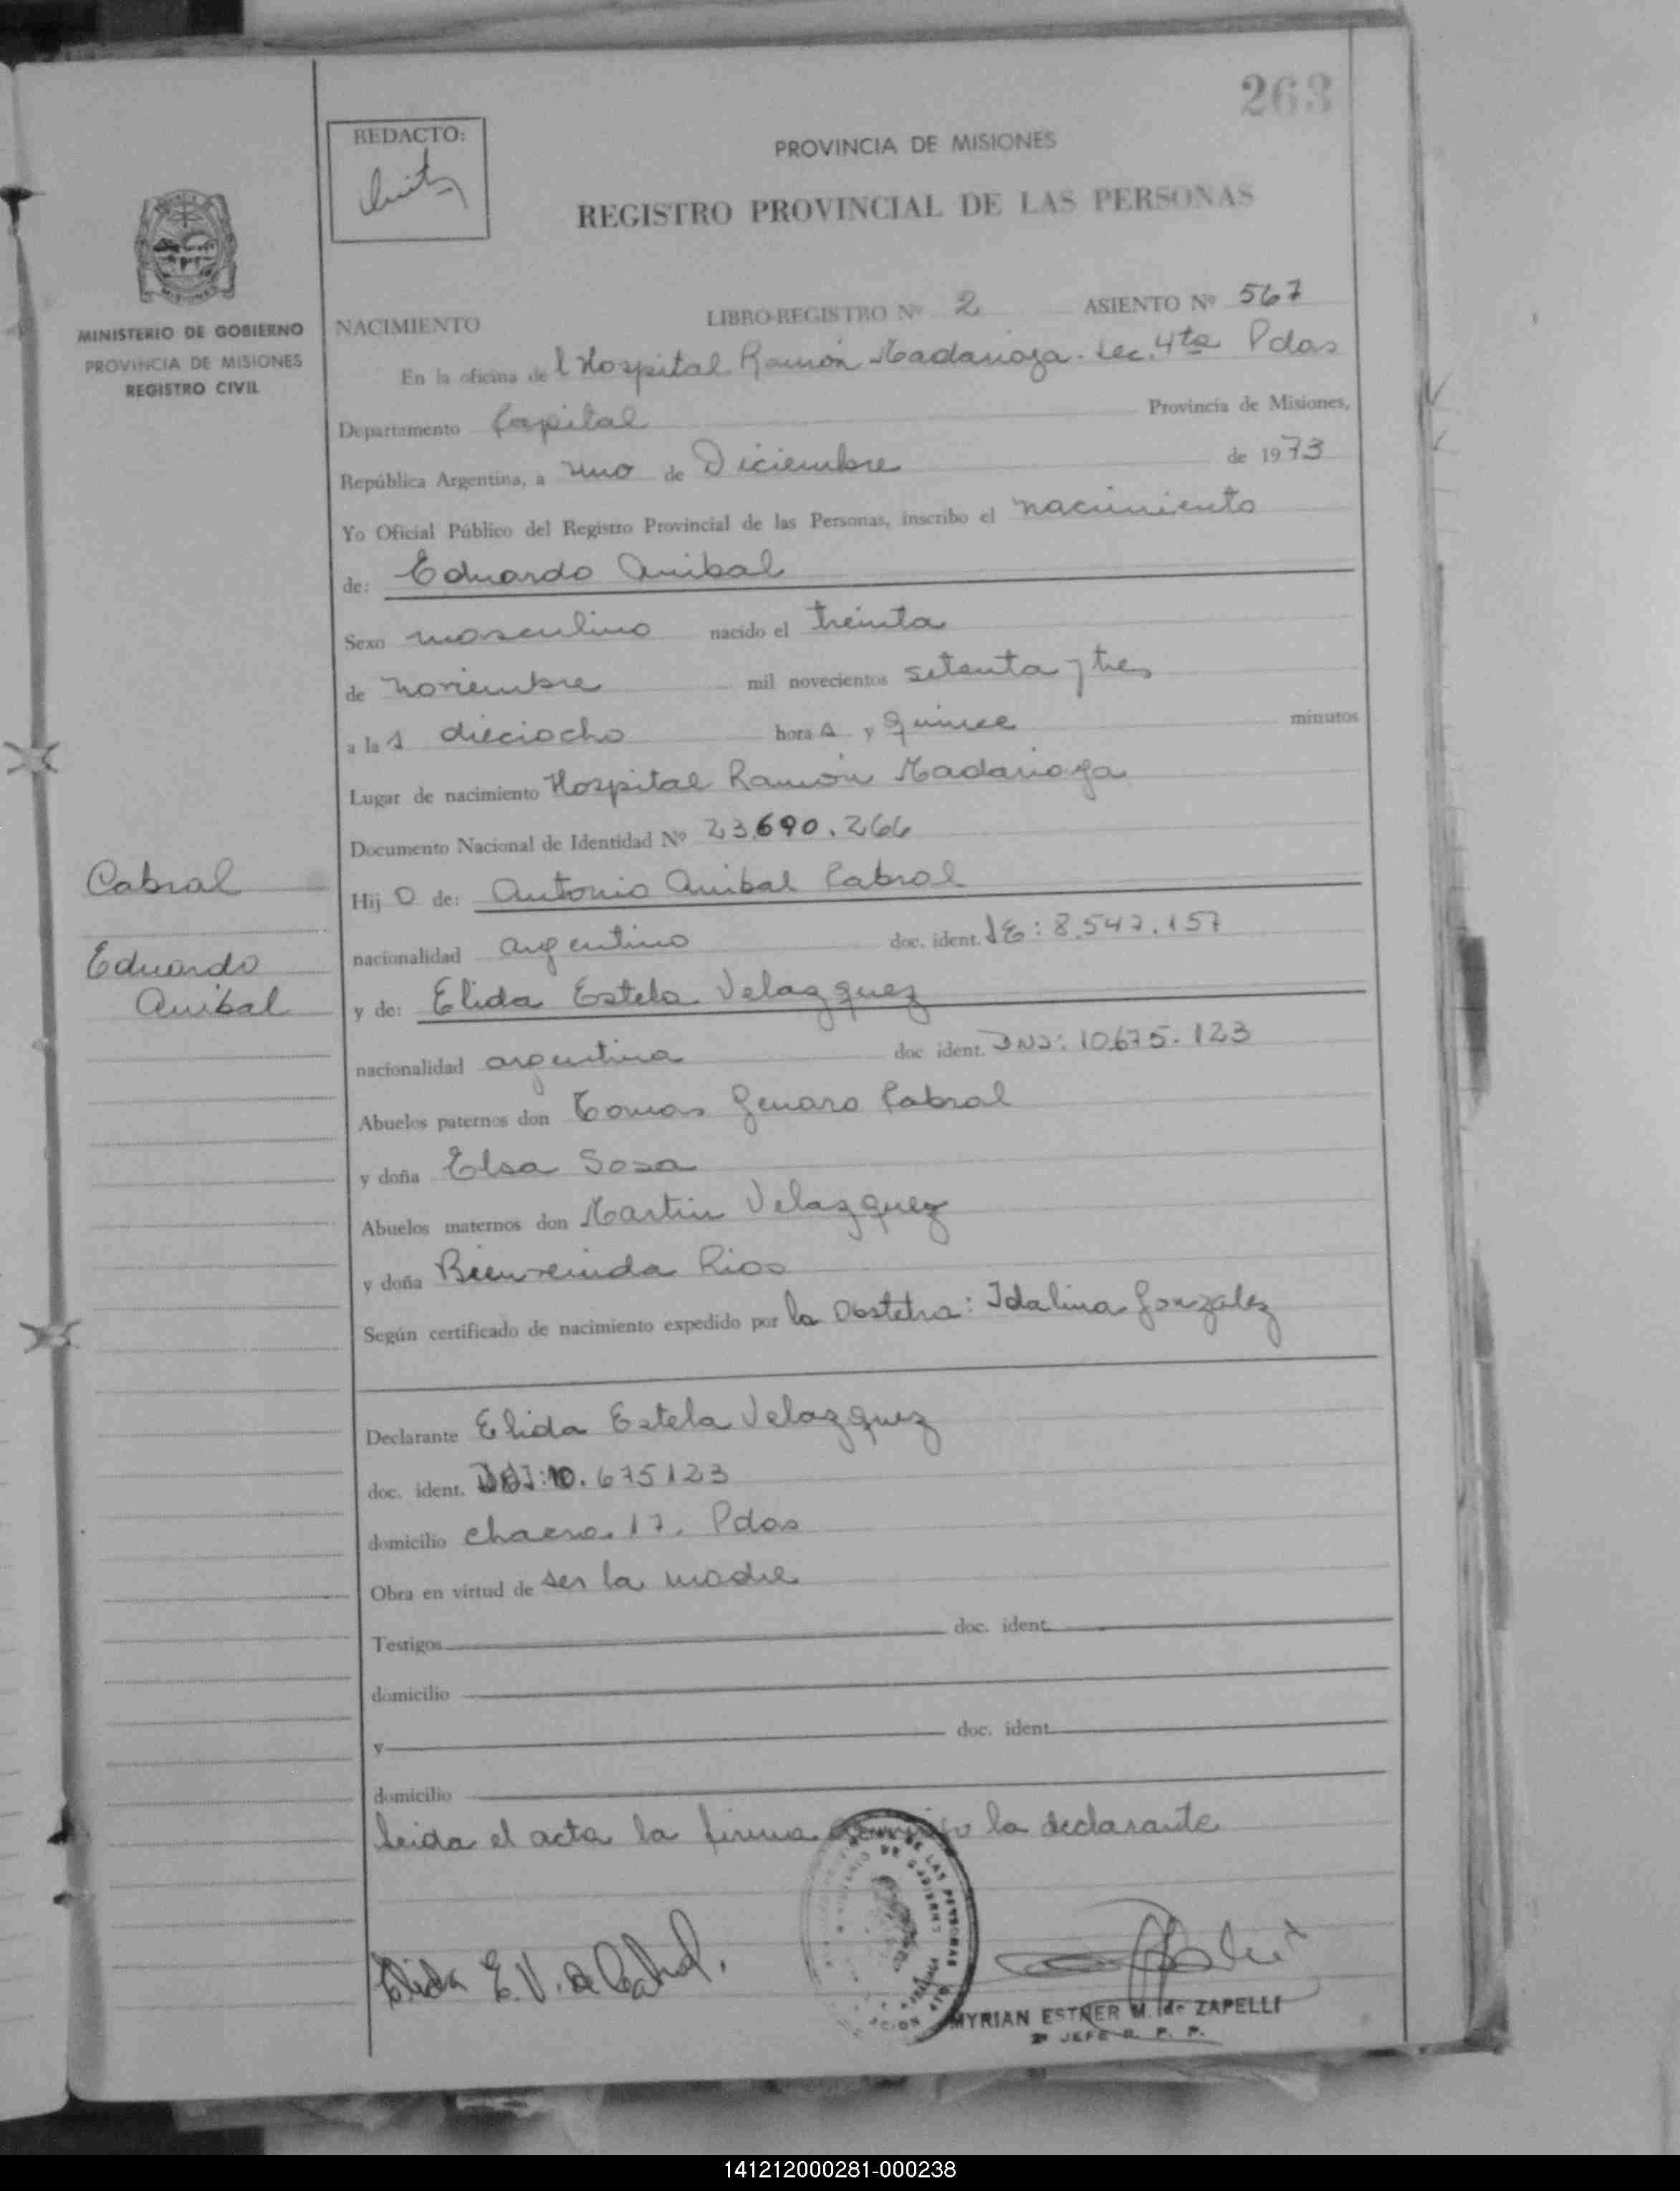 263
REDACTO:
PROVINCIA DE MISIONES
REGISTRO PROVINCIAL DE LAS PERSONAS
MINISTERIO DE GOBIERNO
PROVINCIA DE MISIONES
REGISTRO CIVIL
NACIMIENTO LIBRO-REGISTRO Nº 2 ASIENTO Nº 567
En la oficina del Hospital Ramón Madariaga. Sec. 4ta Pdas
Departamento Capital Provincia de Misiones,
República Argentina, a uno de Diciembre de 1973
Yo Oficial Público del Registro Provincial de las Personas, inscribo el nacimiento
de: Eduardo Anibal
Sexo masculino nacido el treinta
de noviembre mil novecientos setenta y tres
a las dieciocho horas y quince minutos
Lugar de nacimiento Hospital Ramón Madariaga
Documento Nacional de Identidad Nº 23.690.266
Cabral
Hijo de: Antonio Anibal Cabral
nacionalidad argentino doc. ident. LE: 8.547.157
Eduardo
Anibal
y de: Elida Estela Velazquez
nacionalidad argentina doc ident. DNI: 10.675.123
Abuelos paternos don Tomas Genaro Cabral
y doña Elsa Sosa
Abuelos maternos don Martin Velazquez
y doña Bienvenida Rios
Según certificado de nacimiento expedido por la Obstetra: Idalina Gonzalez
Declarante Elida Estela Velazquez
doc. ident. DNI: 10.675123
domicilio chacra 17. Pdas
Obra en virtud de ser la madre
Testigos doc. ident.
domicilio
y doc. ident.
domicilio
Leida el acta la firma conmigo la declarante
Elida E. V. de Cabral.
MYRIAN ESTHER M. de ZAPELLI
2º JEFE R. P. P.
141212000281-000238